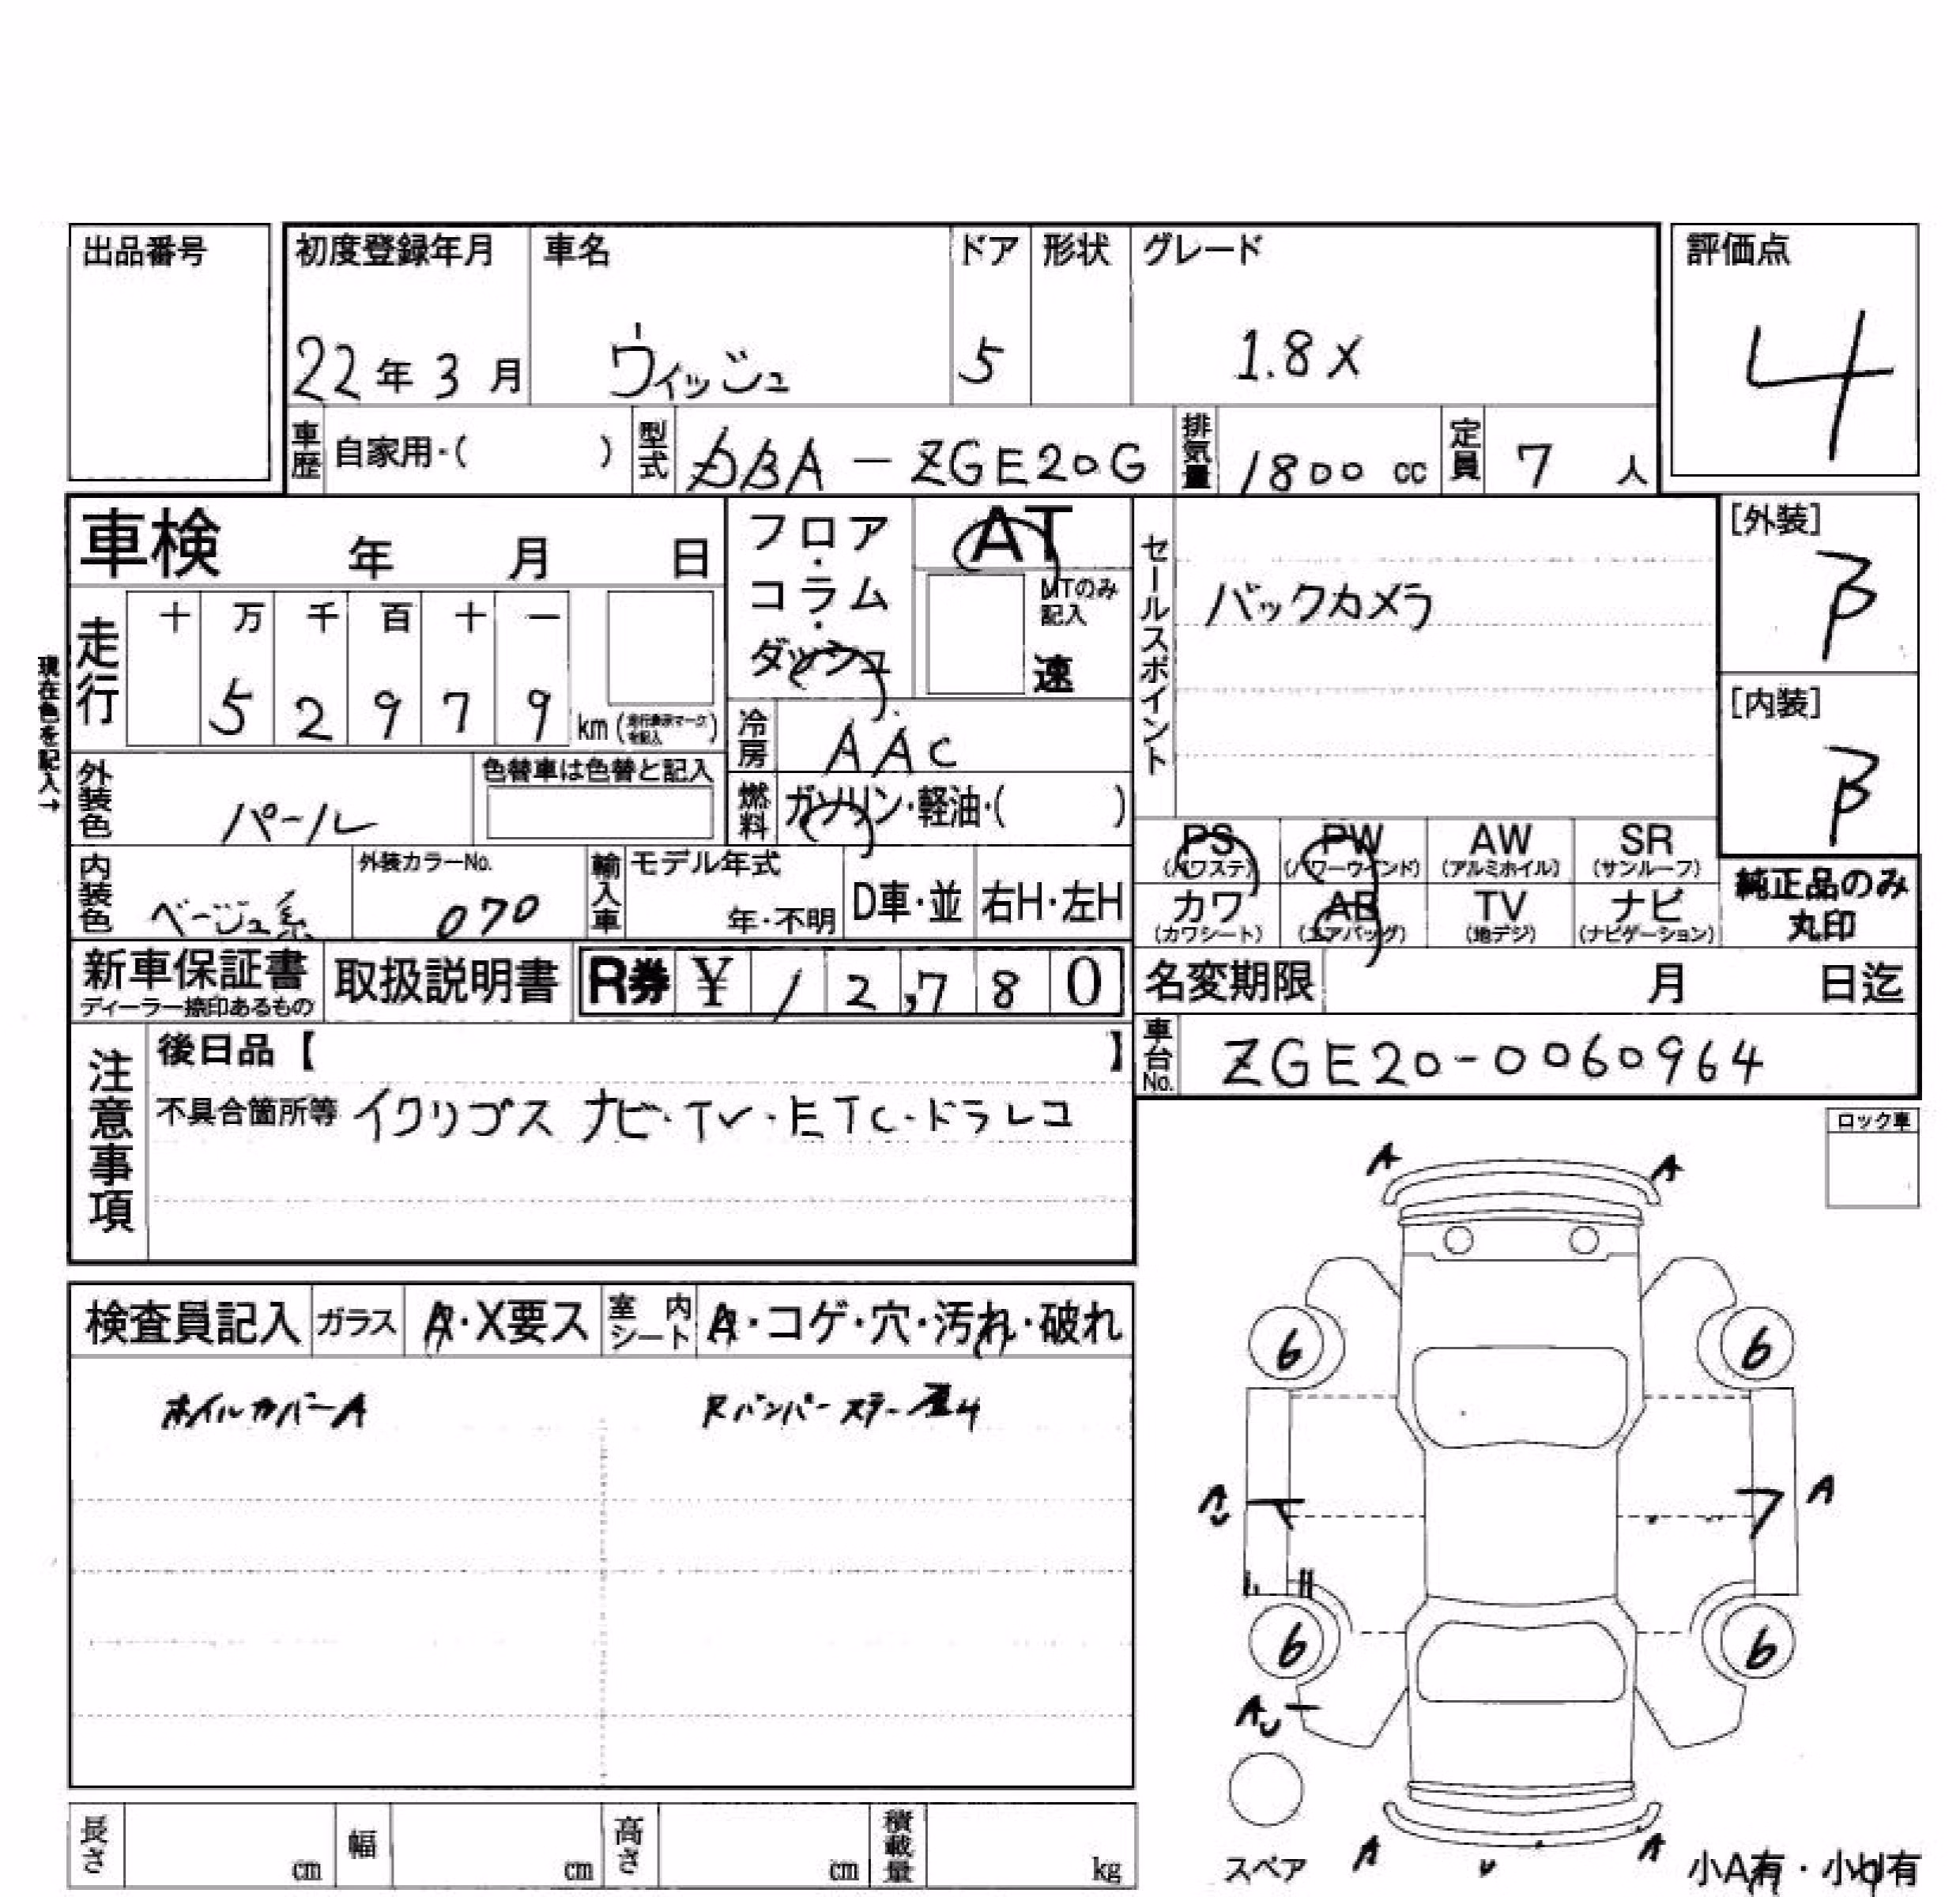 出品番号
初度登録年月 車名 ドア 形状 グレード 評価点
22年 3月 ウィッシュ 5 1.8X 4
車歴 自家用・( ) 型式 DBA-ZGE20G 排気量 1800 cc 定員 7 人
車検 年 月 日
フロア・コラム・ダッシュ
AT
MTのみ記入
速
セールスポイント
バックカメラ
[外装]
B
[内装]
B
走行 十 万 千 百 十 一
5 2 9 7 9 km (走行表示マークを記入)
現在色を記入→
冷房 AAC
外装色 パール 色替車は色替と記入
燃料 ガソリン・軽油・( )
内装色 ベージュ系 外装カラーNo. 070
輸入車 モデル年式 年・不明 D車・並 右H・左H
PS (パワステ) PW (パワーウインド) AW (アルミホイル) SR (サンルーフ)
カワ (カワシート) AB (エアバッグ) TV (地デジ) ナビ (ナビゲーション)
純正品のみ丸印
新車保証書 ディーラー捺印あるもの 取扱説明書 R券 ¥ 12,780
名変期限 月 日迄
車台No. ZGE20-0060964
注意事項
後日品【 】
不具合箇所等 イクリプス ナビ・TV・ETC・ドラレコ
ロック車
検査員記入 ガラス A・X要ス 室内シート A・コゲ・穴・汚れ・破れ
ホイルカバーA Rバンパーステー
A A
6 6
A
6 6
A A
スペア
小A有・小U有
長さ cm 幅 cm 高さ cm 積載量 kg